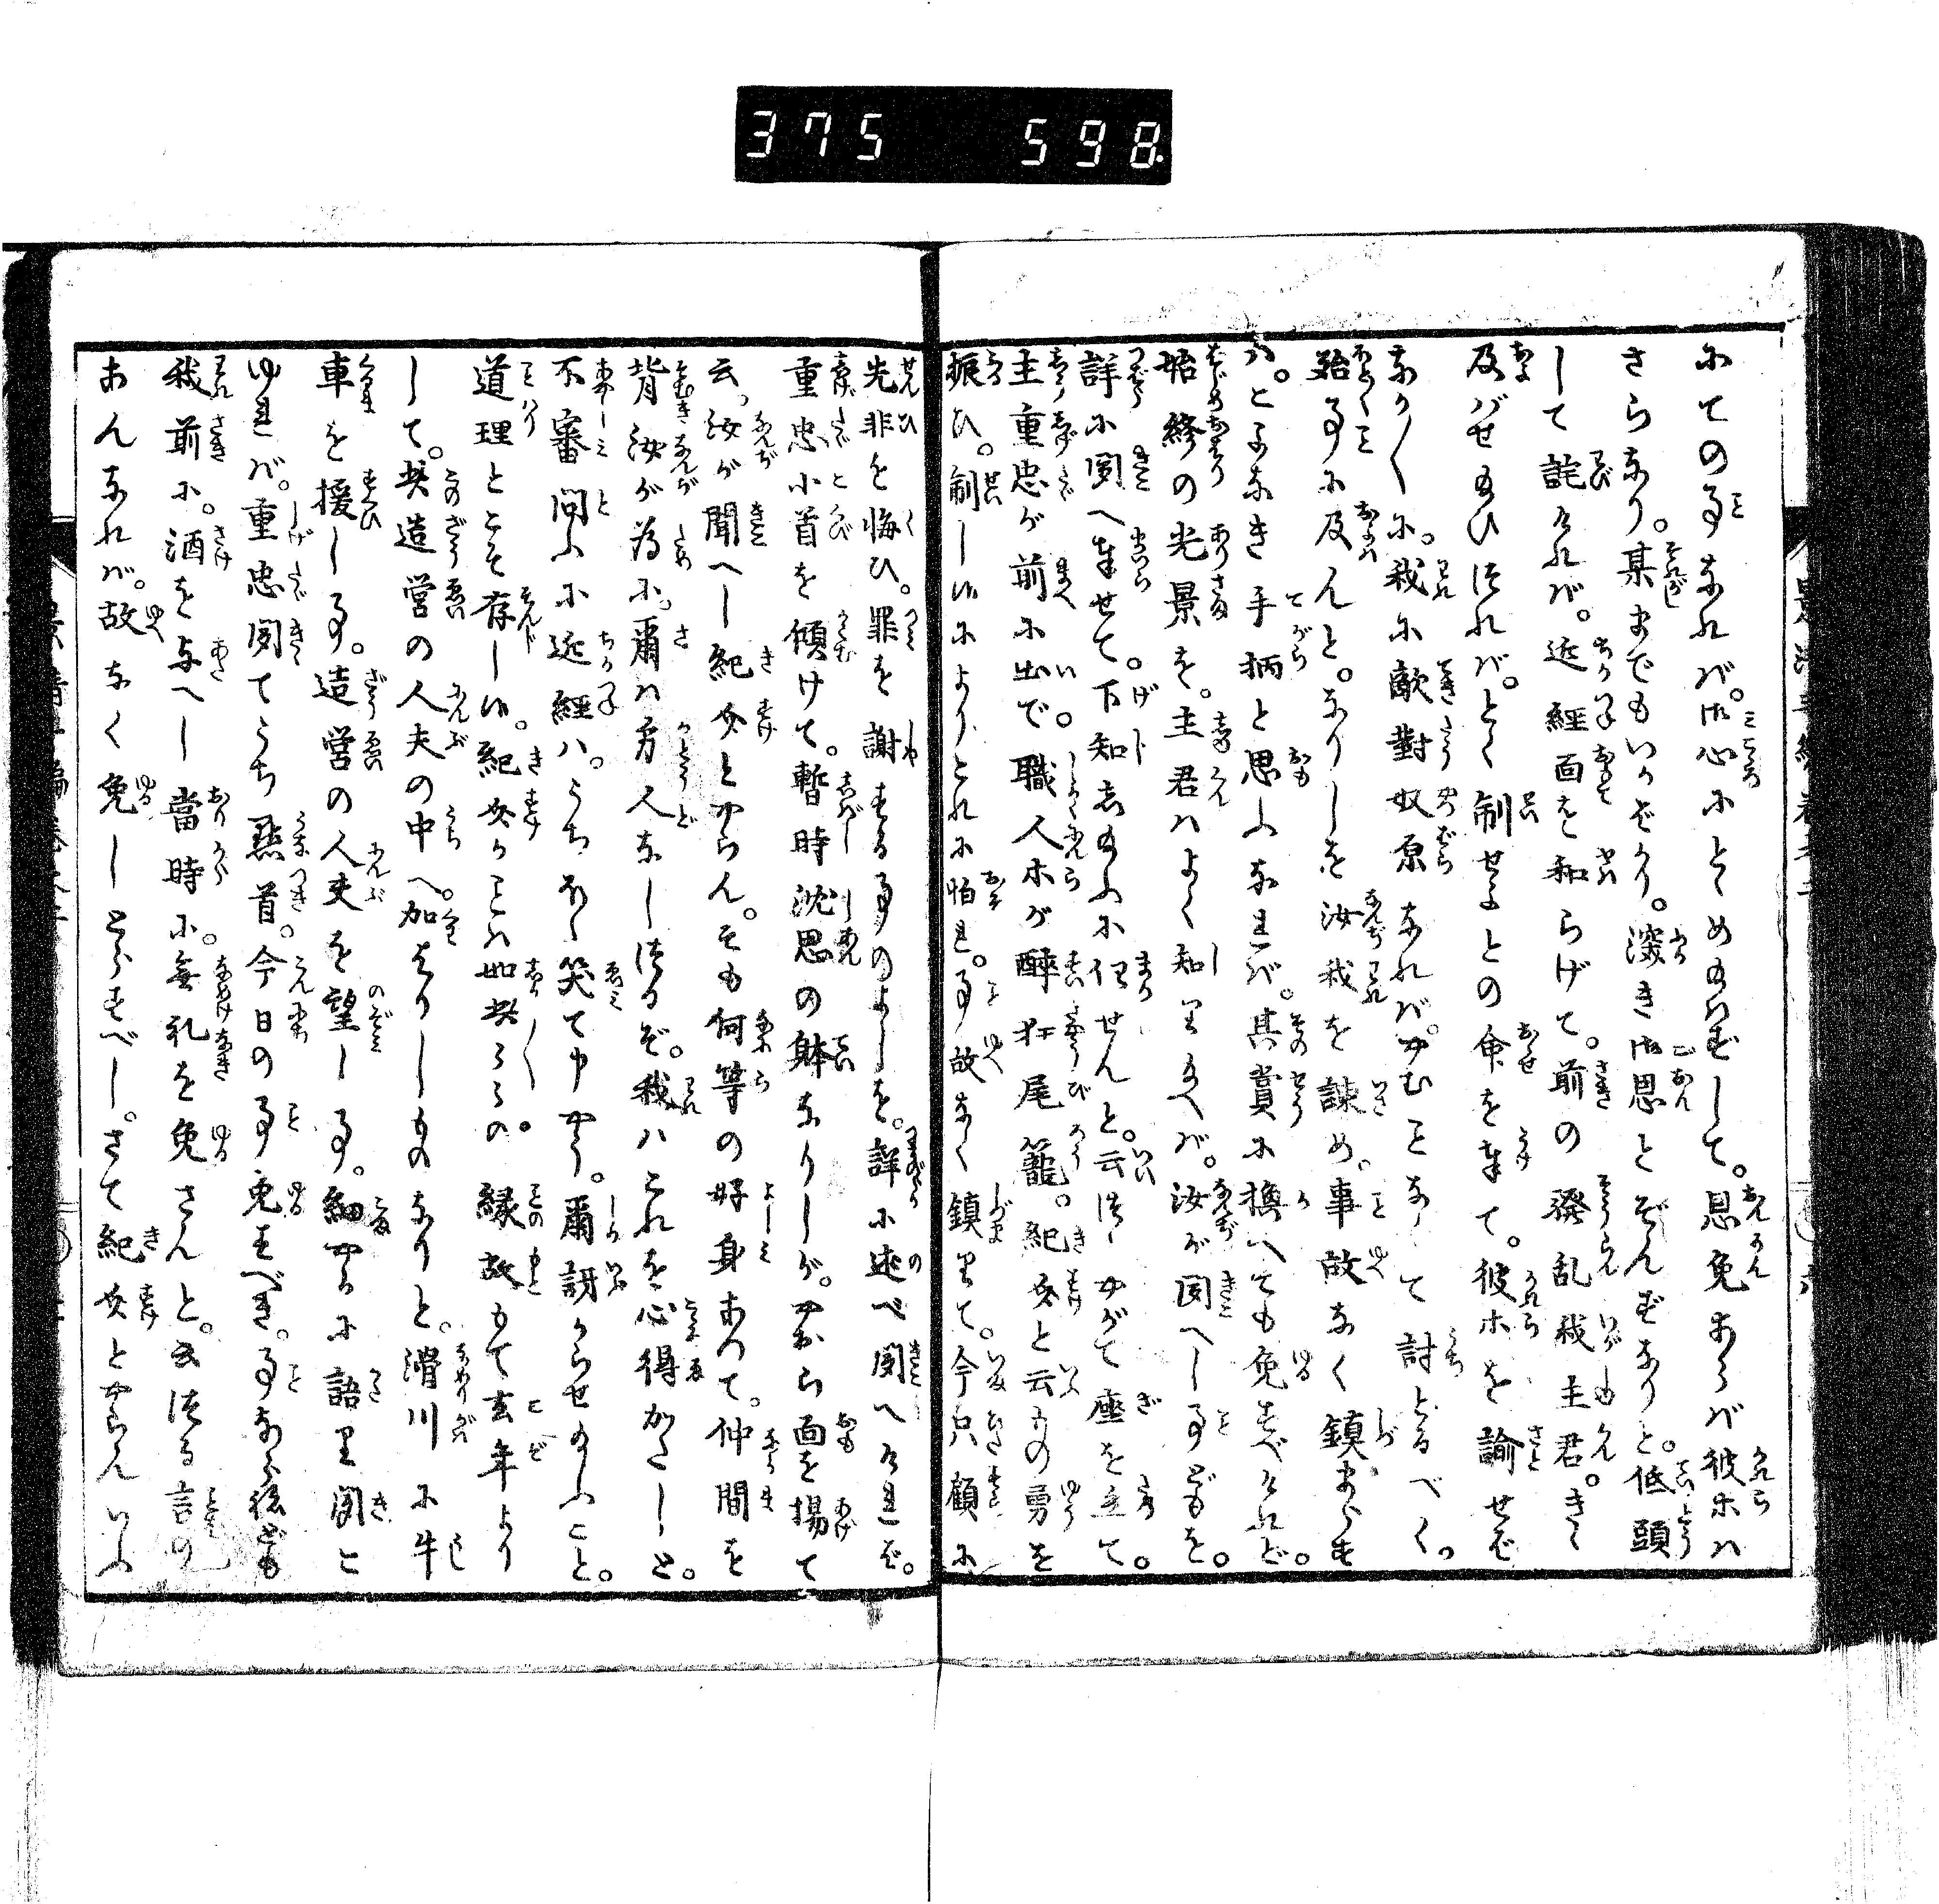 375 598
にての事なれバ。御心にとゞめ給はずして。恩免あらバ彼ホハ
さらなり。某までもいかばかり。深き御恩とぞんずなりと。低頭
して詫けれバ。近經面を和らげて。前の發乱我主君。きゝ
及バせ給ひつれバ。とく制せよとの命を奉て。彼ホを諭せど
なか〱に。我に敵對奴原なれバ。やむことなくて討とるべく。
殆事に及んと。なりしを汝我を諫め。事故なく鎮まらす
ハ。とよなき手柄と思ふなれバ。其賞に換へても免すべけれど。
始終の光景を。主君ハよく知りたまへバ。汝が聞へし事どもを。
詳に聞へ奉せて。下知し給ふに任せんと。云つゝやがて座を立て。
主重忠が前に出で。職人ホが醉狂尾籠。紀女と云もの勇を
振ひ。制し御によりとれに怕れ。事故なく鎮りて。今只顧に
先非を悔ひ。罪を謝する事のよしを。詳に述べ聞へけれど。
重忠小首を傾けて。暫時沈思の躰なりしが。やおら面を揚て
云。汝が聞へし紀女とやらん。そも何等の好身あつて。仲間を
背汝が為に。爾ハ方人なしつるぞ。我ハこれを心得がたしと。
不審問ふに近經ハ。うちほゝ笑て申やう。爾訝からせ給ふこと。
道理とこそ存し御。紀女がことハ如此〱の。縁故もて去年より
して。此造営の人夫の中へ。加はりしものなりと。滑川に牛
車を援し事。造営の人夫を望し事。細やかに語り聞と
ゆれバ。重忠聞てうち點首。今日の事免すべき。事ならねども
我前に。酒を与へし當時に。無礼を免さんと。云つる言の
あんなれバ。故なく免しとらすべし。さて紀女とやらんいふ